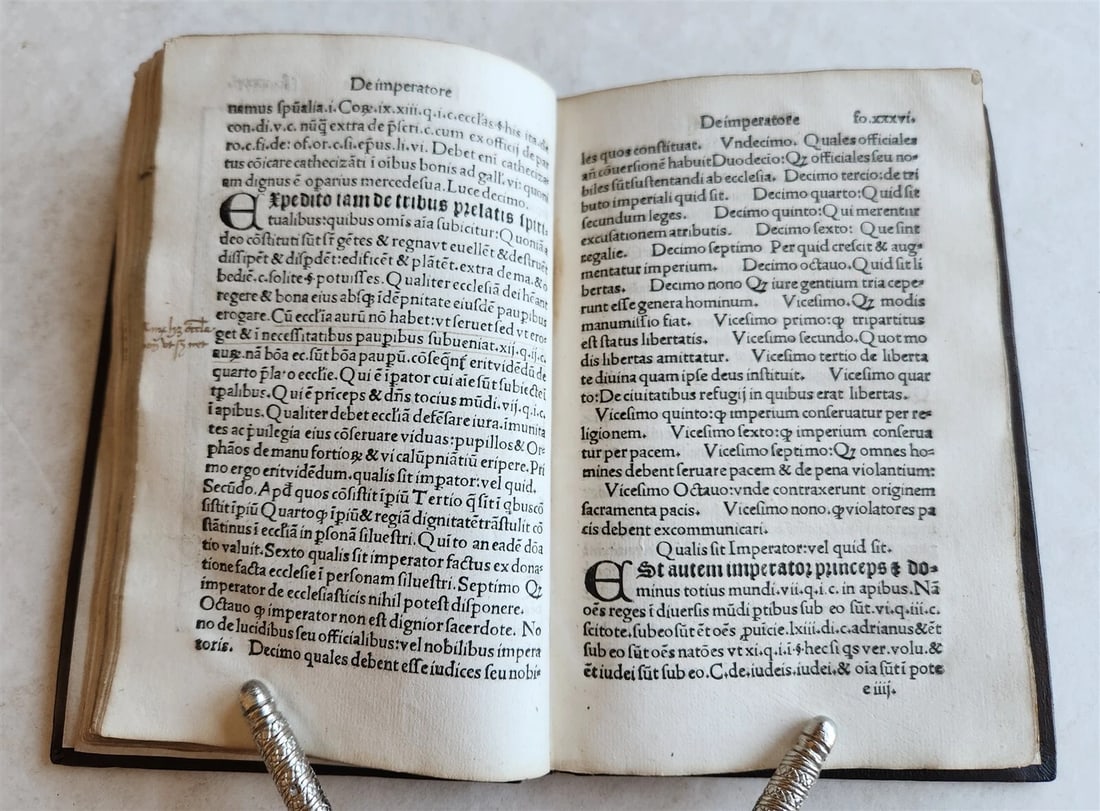 De imperatore
nemus spūalia.i.Coꝝ.ix.xiii.q.i.c.ecclas ⁊ his ita.de
con.di.v.c. nūq̄ extra de p̄scri.c.cum ex officij de par
ro.c.fi.de: of.or.c.si.ep̄us.li.vi. Debet eni cathecizæ
tus cōicare cathecizāti ī oibus bonis ad gall.vi: quoni
am dignus ē oparius mercede sua. Luce decimo.
EXpedito iam de tribus prelatis spiri-
tualibus: quibus omīs aīa subicitur: Quoniā a
deo cōstituti sūt sr̄ gētes & regna vt euellēt & destruēt
dissipēt & disp̄dēt: edificēt & plātēt. extra de ma. & o
bediē.c.solite ⁊ potuisses. Qualiter ecclesiā dei hēant
regere & bona eius absq̧ idēpnitate eiusdē paupibus
erogare. Cū eccl̄ia aurū nō habet: vt seruet sed vt ero-
get & ī necessitatibus paupibus subueniat.xij.q.ij.c.
auꝝ. nā bōa ec. sūt bōa paupū. cōseqn̄t̄ erit vidēdū de
quarto p̄la.o eccl̄ie. Qui ē īpator cui aīe sūt subiecte ī
tp̄alibus. Qui ē prīceps & dn̄s tocius mūdi.vij.q.i.c.
ī apibus. Qualiter debet eccl̄iā defēsare iura. īmunita
tes ac p̄uilegia eius cōseruare viduas: pupillos & Or
phāos de manu fortioꝝ & vi calūpniātiū eripere. Pri
mo ergo erit vidēdum. qualis sit imp̄ator: vel quid.
Secūdo. Apd̄ quos cōsistit īpiū Tertio q̄ siti q̄buscō
sistit īpiū Quarto ꝙ īpiū & regiā dignitatē trāstulit cō
stātinus ī eccl̄iā in p̄sonā siluestri. Quīto an eadē dōa
tio valuit. Sexto qualis sit imperator factus ex dona-
tione facta ecclesie ī personam siluestri. Septimo Qz
imperator de ecclesiasticis nihil potest disponere.
Octauo ꝙ imperator non est dignior sacerdote. No
no de lucidibus seu officialibus: vel nobilibus impera
toris. Decimo quales debent esse iudices seu nobi-
De imperatore fo.xxxvi.
les quos constituat. Vndecimo. Quales officiales
añ cōuersionē habuit Duodecio: Qz officiales seu no-
biles sūt sustentandi ab ecclesia. Decimo tercio: de tri
buto imperiali quid sit. Decimo quarto: Quid sit
secundum leges. Decimo quinto: Qui merentur
excusationem a tributis. Decimo sexto: Que sint
regalie. Decimo septimo Per quid crescit & aug-
mentatur imperium. Decimo octauo. Quid sit li
bertas. Decimo nono Qz iure gentium tria cepe-
runt esse genera hominum. Vicesimo. Qz modis
manumissio fiat. Vicesimo primo: ꝙ tripartitus
est status libertatis. Vicesimo secundo. Quot mo
dis libertas amittatur. Vicesimo tertio de liberta
te diuina quam ipse deus instituit. Vicesimo quar
to: De ciuitatibus refugij in quibus erat libertas.
Vicesimo quinto: ꝙ imperium conseruatur per re-
ligionem. Vicesimo sexto: ꝙ imperium conserua
tur per pacem. Vicesimo septimo: Qz omnes ho-
mines debent seruare pacem & de pena violantium:
Vicesimo Octauo: vnde contraxerunt originem
sacramenta pacis. Vicesimo nono. ꝙ violatores pa
cis debent excommunicari.
Qualis sit Imperator: vel quid sit.
ESt autem imperator princeps ⁊ do-
minus totius mundi.vii.q.i.c. in apibus. Nā
oēs reges ī diuersis mūdi ptibus sub eo sūt.vi.q.iii.c.
scitote. sub eo sūt ēt oēs ꝓuīcie.lxiii.di.c.adrianus & ēt
sub eo sūt oēs natōes vt xi.q.i.i ⁊ hec si qs ver.volu. &
ēt iudei sūt sub eo. C.de. iudeis. iudei. & oīa sūt ī pote
e iiij.